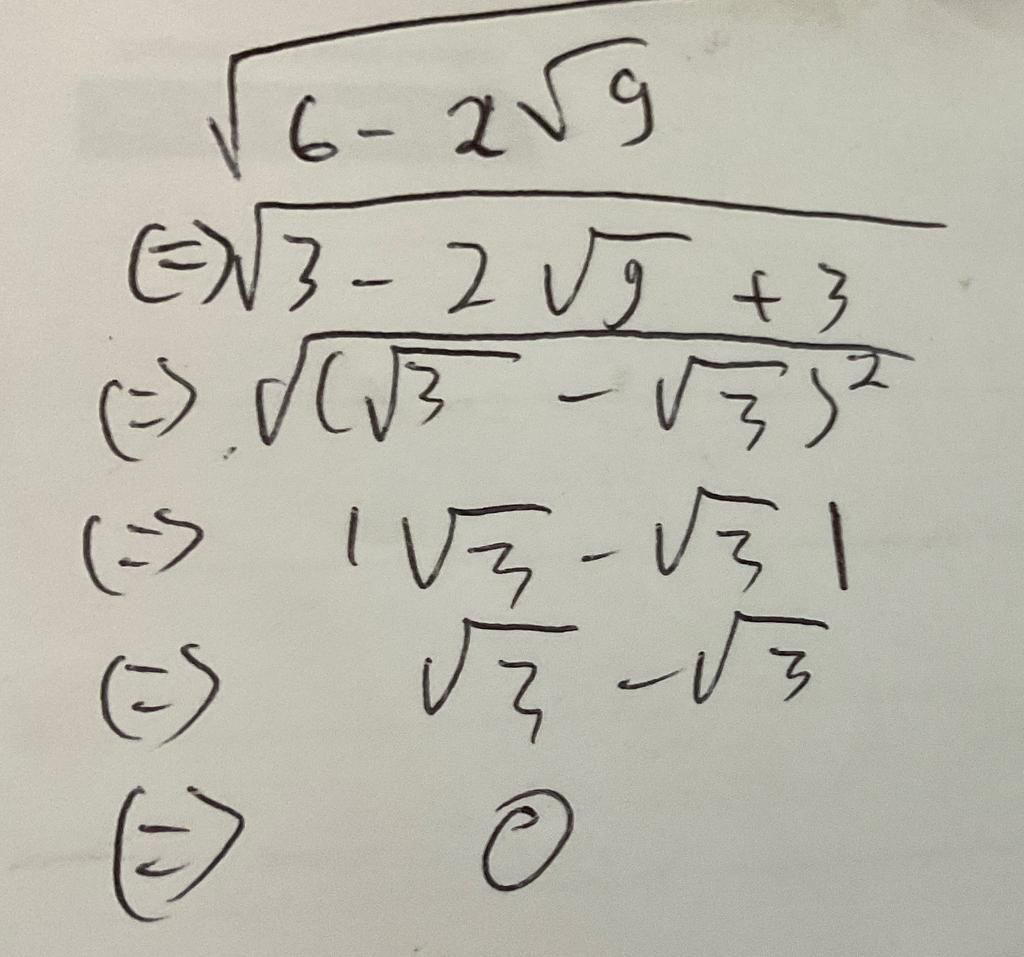 √(6 - 2√9)
(=) √(3 - 2√9 + 3)
(=) √((√3 - √3)²)
(=) |√3 - √3|
(=) √3 - √3
(=) 0